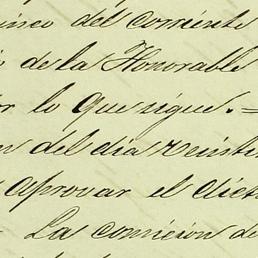 cinco del corriente
de la Honorable
lo que sigue. =
del dia veinte
aprovar el dict
La comicion de